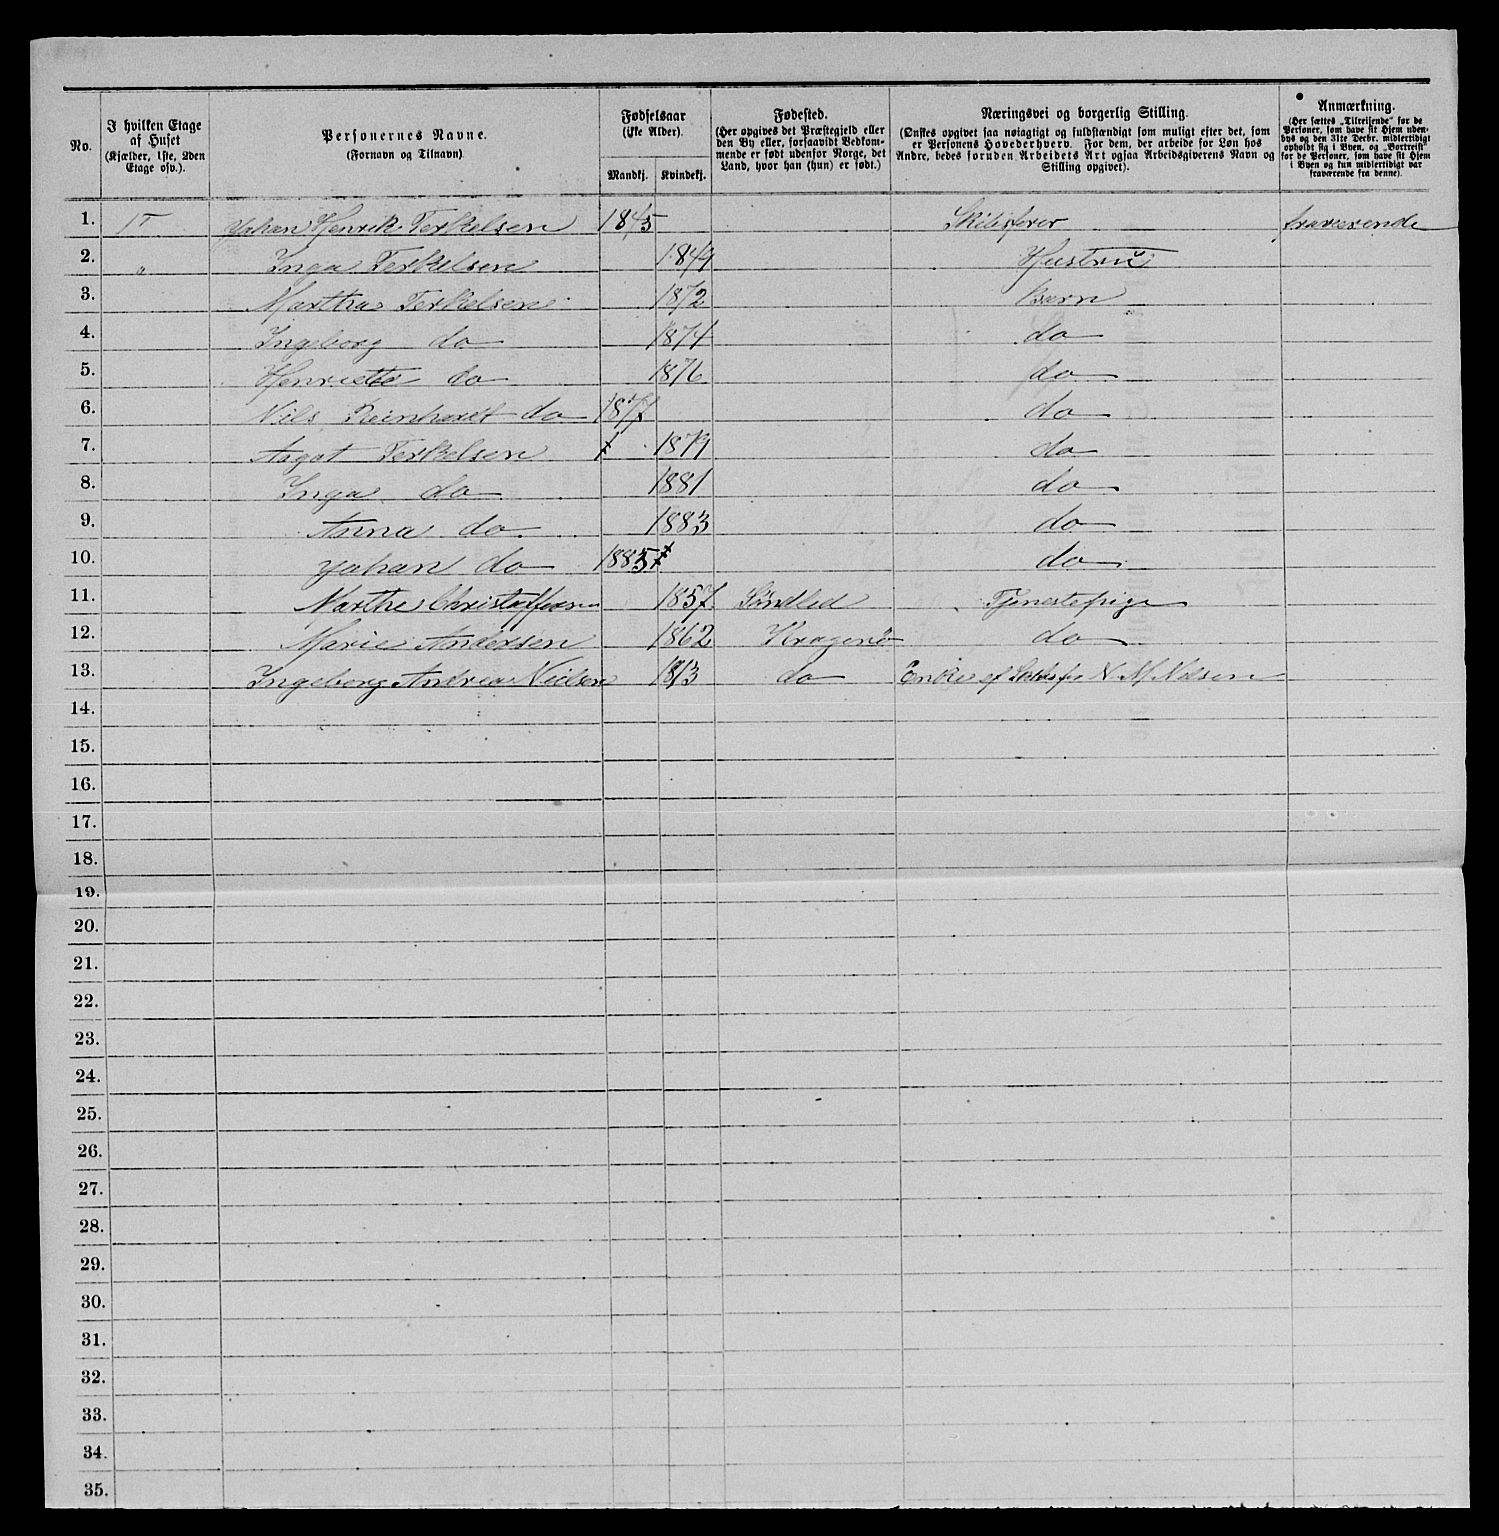 No.
I hvilken Etage
af Huset
(Kjælder, 1ste, 2den
Etage osv.).
Personernes Navne.
(Fornavn og Tilnavn).
Fødselsaar
(ikke Alder).
Mandkj. Kvindekj.
Fødested.
(Her opgives det Præstegjeld eller
den By eller, forsaavidt Vedkom-
mende er født udenfor Norge, det
Land, hvor han (hun) er født.)
Næringsvei og borgerlig Stilling.
(Ønskes opgivet saa nøiagtigt og fuldstændigt som muligt efter det, som
er Personens Hovederhverv. For dem, der arbeide for Løn hos
Andre, bedes foruden Arbeidets Art ogsaa Arbeidsgiverens Navn og
Stilling opgivet).
Anmærkning.
(Her sættes „Tilreisende" for de
Personer, som have sit Hjem uden-
bys og den 31te Decbr. midlertidigt
opholdt sig i Byen, og „Bortreist"
for de Personer, som have sit Hjem
i Byen og kun midlertidigt var
fraværende fra denne).
1. 1T Johan Henrik Terkelsen 1845 Skibsfører fraverende
2. " Inga Terkelsen 1849 Hustru
3. Martha Terkelsen 1872 Barn
4. Ingeborg do 1874 do
5. Henriette do 1876 do
6. Nils Reinhardt do 1877 do
7. Aagot Terkelsen 1879 do
8. Inga do 1881 do
9. Anna do 1883 do
10. Johan do 1885 do
11. Marthe Christoffersen 1857 Søndled Tjenestepige
12. Marie Andersen 1862 Kragerø do
13. Ingeborg Andrea Nielsen 1813 do Enke af Skibsfø N M Nilsen
14.
15.
16.
17.
18.
19.
20.
21.
22.
23.
24.
25.
26.
27.
28.
29.
30.
31.
32.
33.
34.
35.